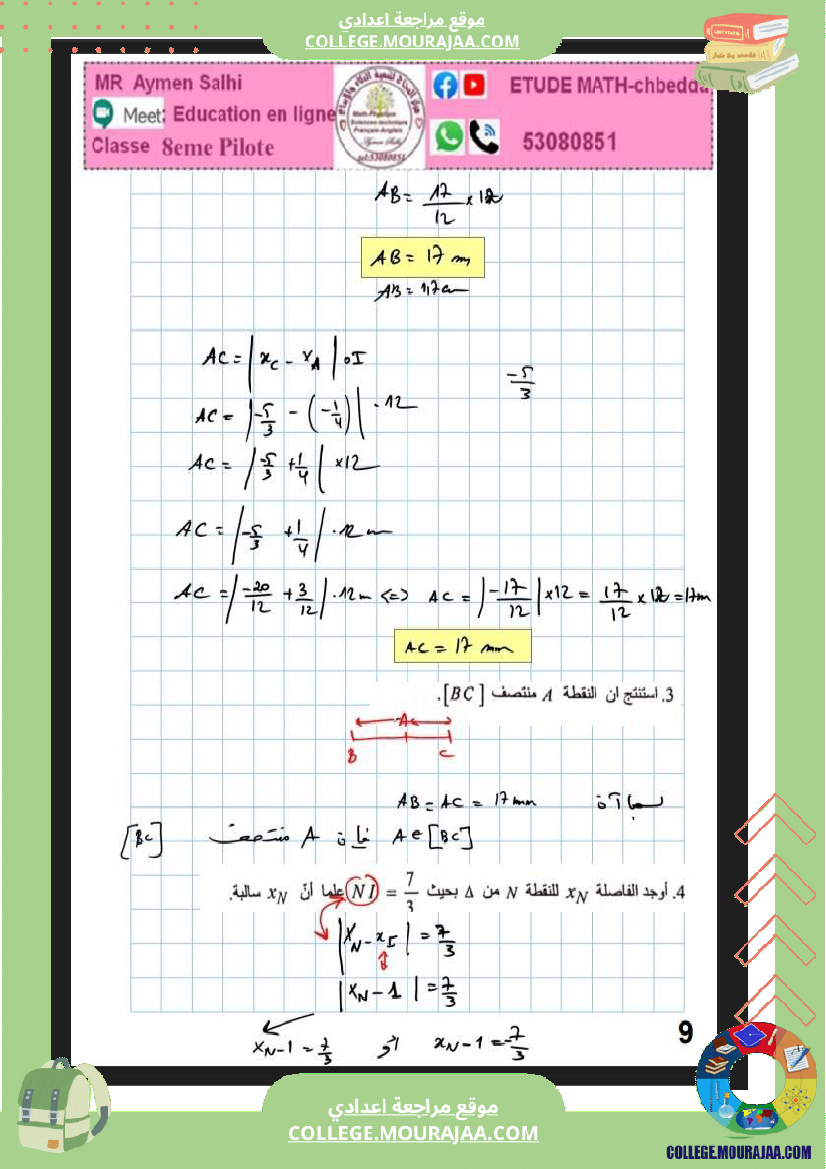 موقع مراجعة اعدادي
COLLEGE.MOURAJAA.COM
MR Aymen Salhi
ETUDE MATH-chbedda
Meet: Education en ligne
Classe 8eme Pilote
53080851
AB = 17/12 × 12
AB = 17 m
AB = 1,7 cm
AC = |x_C - x_A| OI
-5/3
AC = |-5/3 - (-1/4)| . 12
AC = |-5/3 + 1/4| × 12
AC = |-5/3 + 1/4| . 12 m
AC = |-20/12 + 3/12| . 12 m <=> AC = |-17/12| × 12 = 17/12 × 12 = 17m
AC = 17 mm
3. استنتج ان النقطة A منتصف [BC].
A
B C
بما أن AB = AC = 17 mm
A ∈ [BC] فإن A منتصف [BC]
4. أوجد الفاصلة x_N للنقطة N من Δ بحيث NI = 7/3 علما أنّ x_N سالبة.
|x_N - x_I| = 7/3
|x_N - 1| = 7/3
x_N - 1 = 7/3 أو x_N - 1 = -7/3
9
موقع مراجعة اعدادي
COLLEGE.MOURAJAA.COM
COLLEGE.MOURAJAA.COM